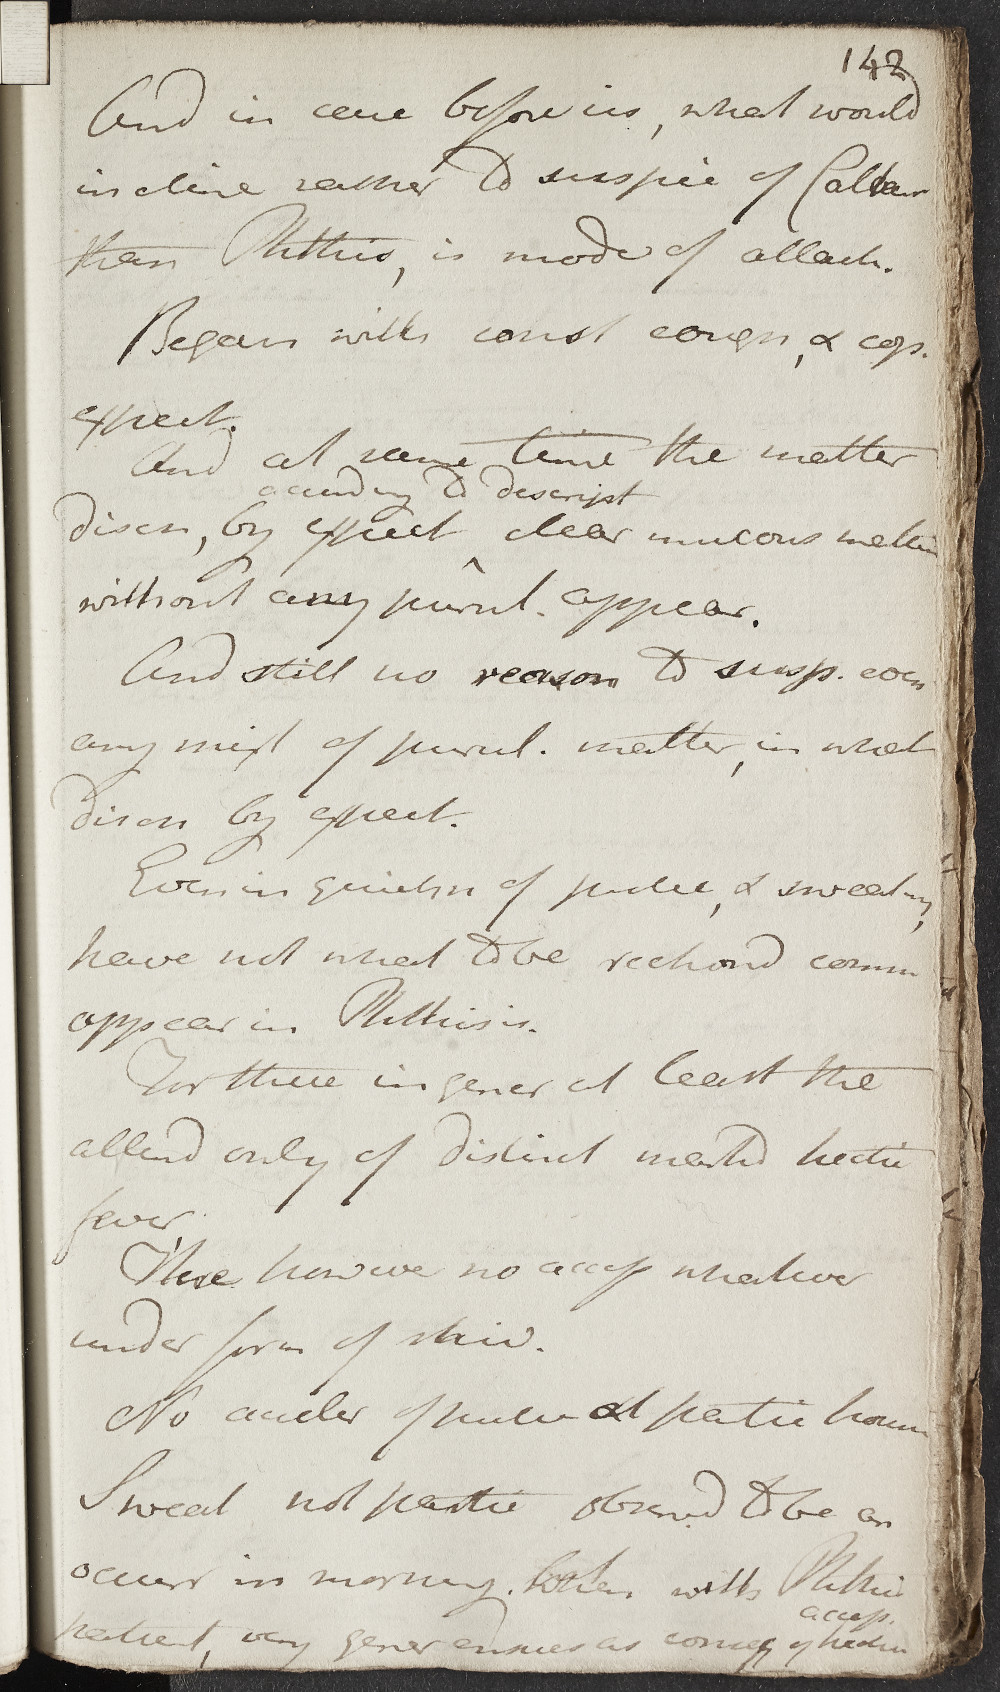 142
And in case before us, what would
incline rather to suspic of Catarr
than Phthis, is mode of attack.
Began with const cough, & cop.
expect.
And at same time the matter
according to descript
disch, by expect clear mucous matter
without any purul. appear.
And still no reason to susp. even
any mixt of purul. matter, in what
disch by expect.
Even in quickn of pulse, & sweating,
have not what to be reckond comm
appear in Phthisis.
For these in gener at least the
attend only of distinct markd hectic
fever.
Here however no access whatever
under form of shiv.
No acceler of pulse at partic hours
Sweat not partic observd to be an
occurr in morning. When with Phthis
accesss.
patient, very gener ensues as conseq of hectic